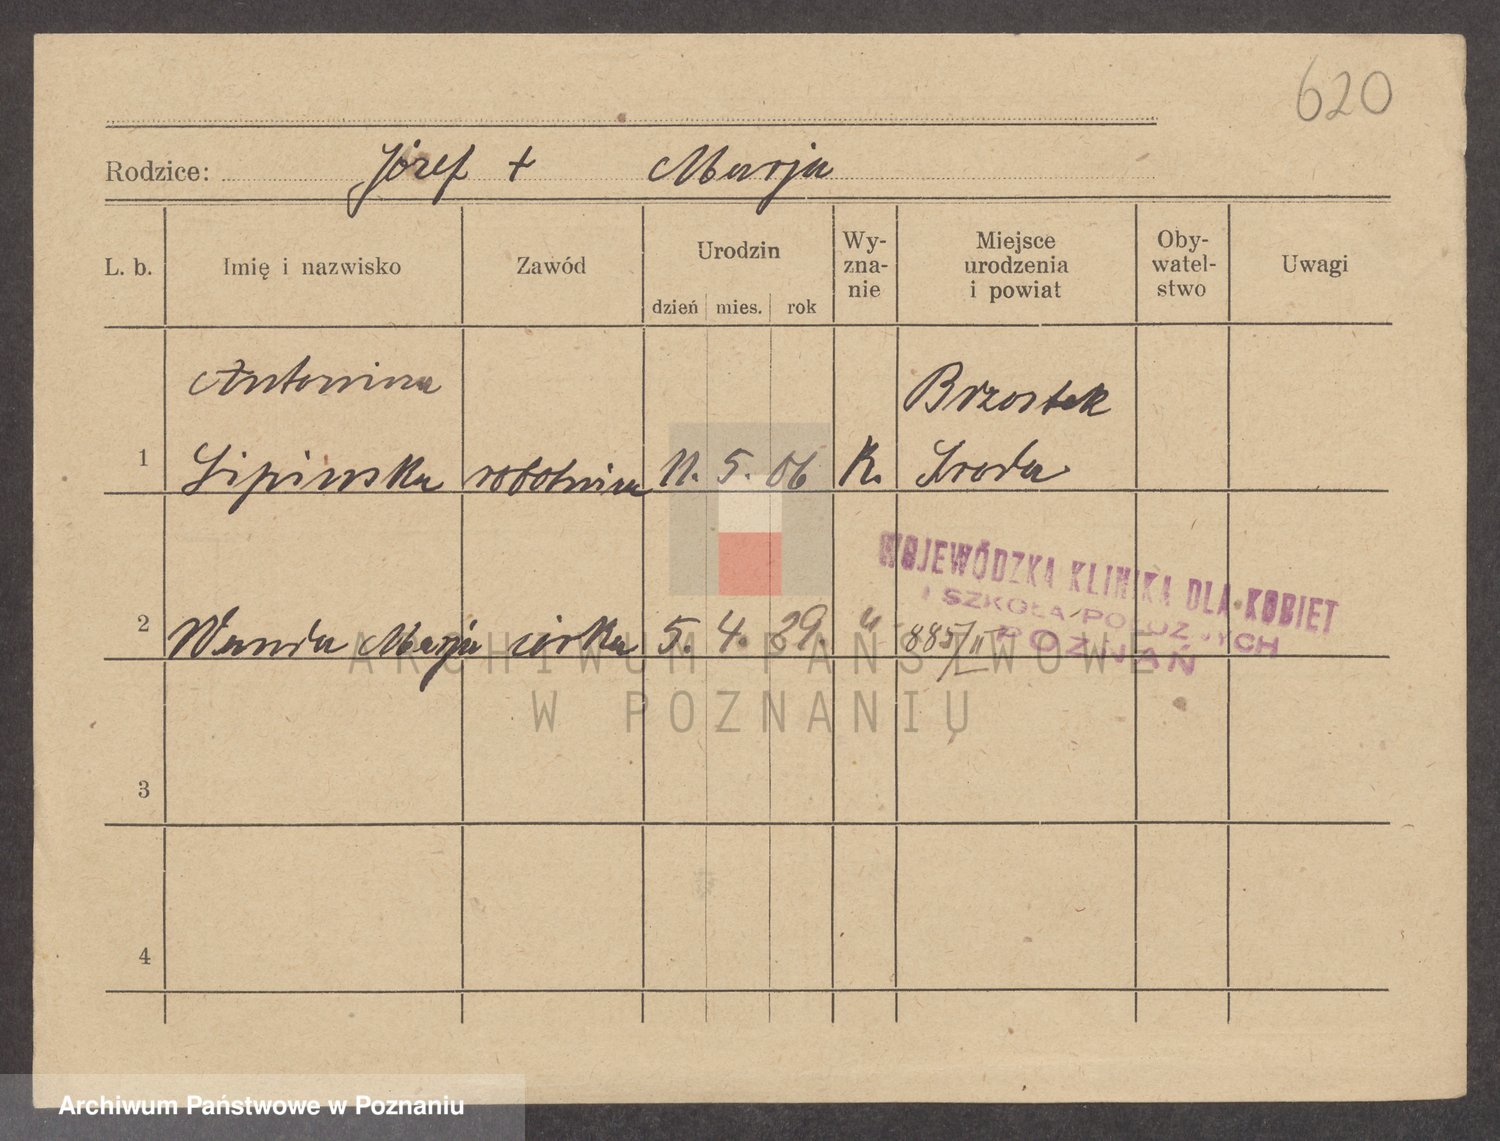 620
Rodzice: Józef + Marja
L. b. Imię i nazwisko Zawód Urodzin dzień mies. rok Wy-zna-nie Miejsce urodzenia i powiat Oby-watel-stwo Uwagi
Antonina Brzostek
1 Lipinska robotnica 11. 5. 06 K. Sroda
WOJEWÓDZKA KLINIKA DLA KOBIET
I SZKOŁA POŁOŻNYCH
POZNAŃ
2 Wanda Marja córka 5. 4. 29. " 885/II
3
4
ARCHIWUM PAŃSTWOWE
W POZNANIU
Archiwum Państwowe w Poznaniu